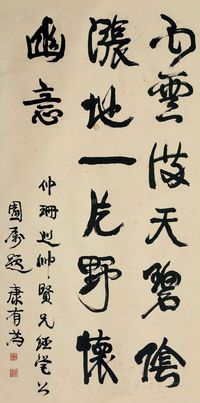 雲天碧陰
漲地一片野懷
幽意
仲珊巡帥賢兄經營公
園屬題 康有為